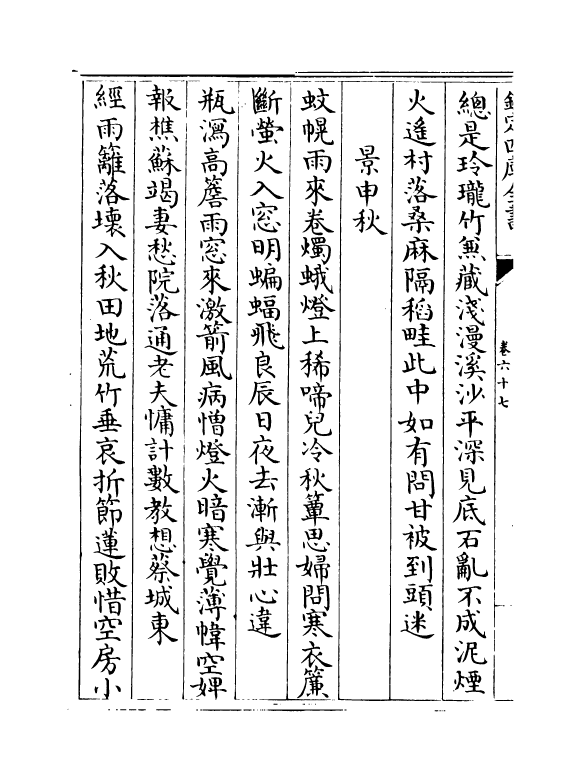 欽定四庫全書
卷六十七
總是玲瓏竹無藏淺漫溪沙平深見底石亂不成泥煙
火遙村落桑麻隔稻畦此中如有問甘被到頭迷
景申秋
蚊幌雨來卷燭蛾燈上稀啼兒冷秋簟思婦問寒衣簾
斷螢火入窓明蝙蝠飛良辰日夜去漸與壯心違
瓶瀉高簷雨窓來激箭風病憎燈火暗寒覺薄幃空婢
報樵蘇竭妻愁院落通老夫慵計數教想蔡城東
經雨籬落壞入秋田地荒竹垂哀折節蓮敗惜空房小